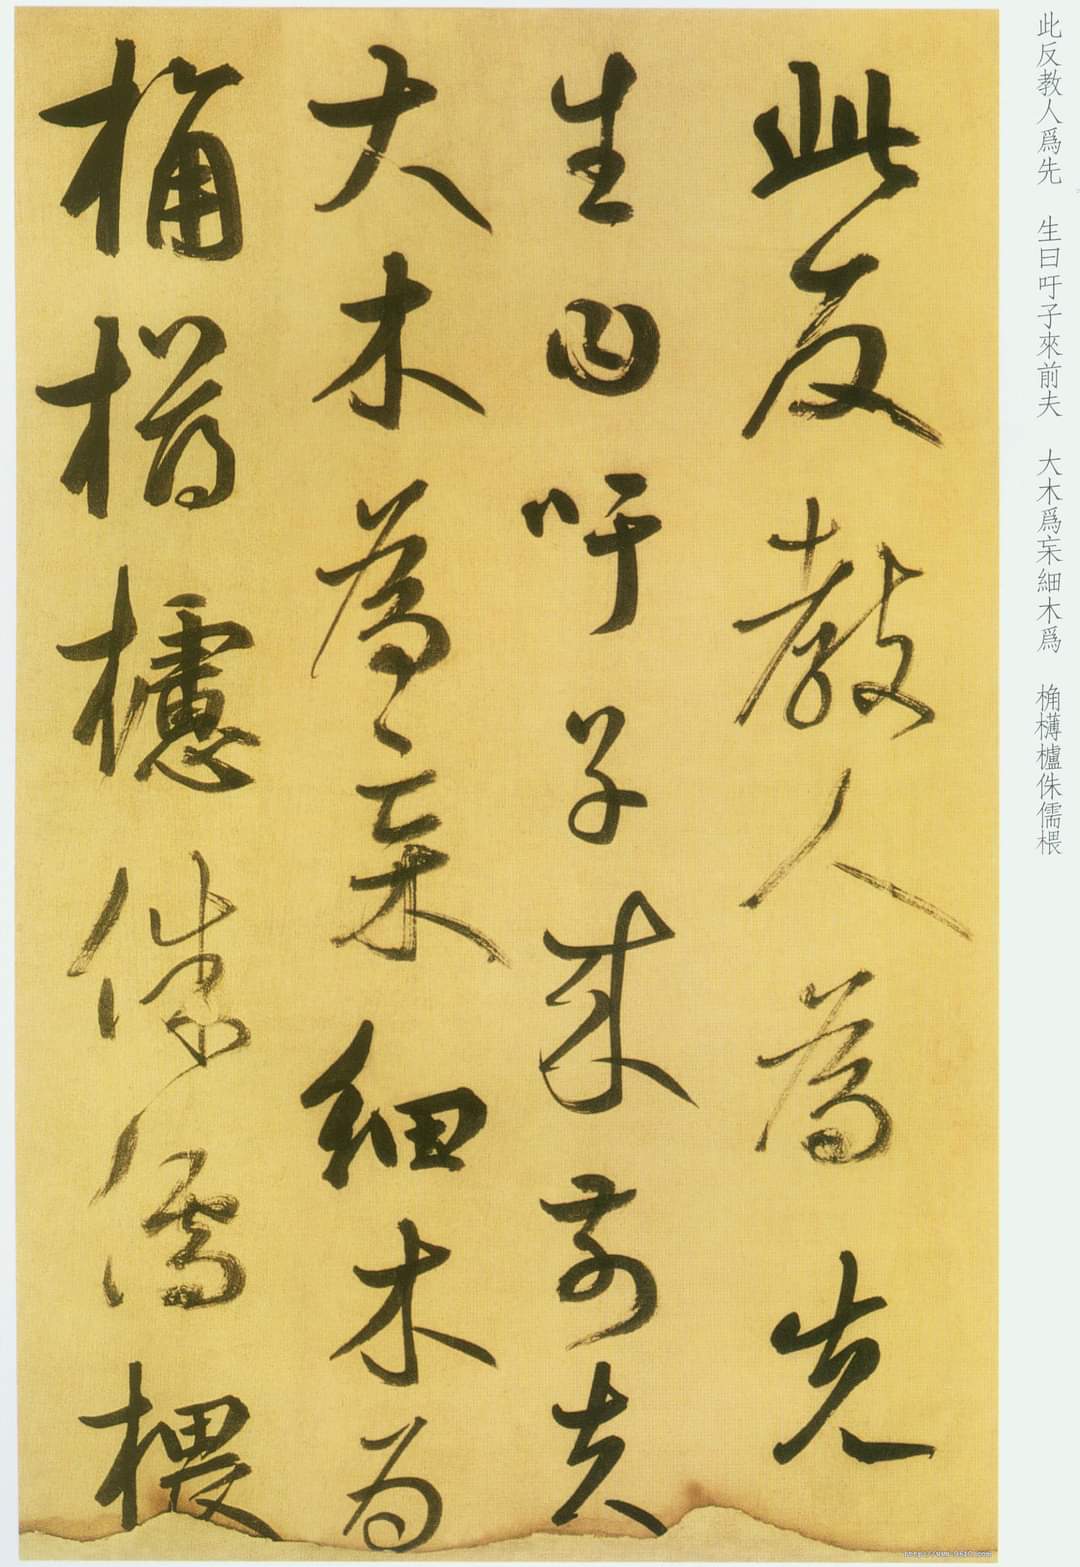 此反教人爲先　生曰吁子來前夫　大木爲杗細木爲　桷欂櫨侏儒椳
此反教人為先
生曰吁子来前夫
大木為杗細木為
桷欂櫨侏儒椳